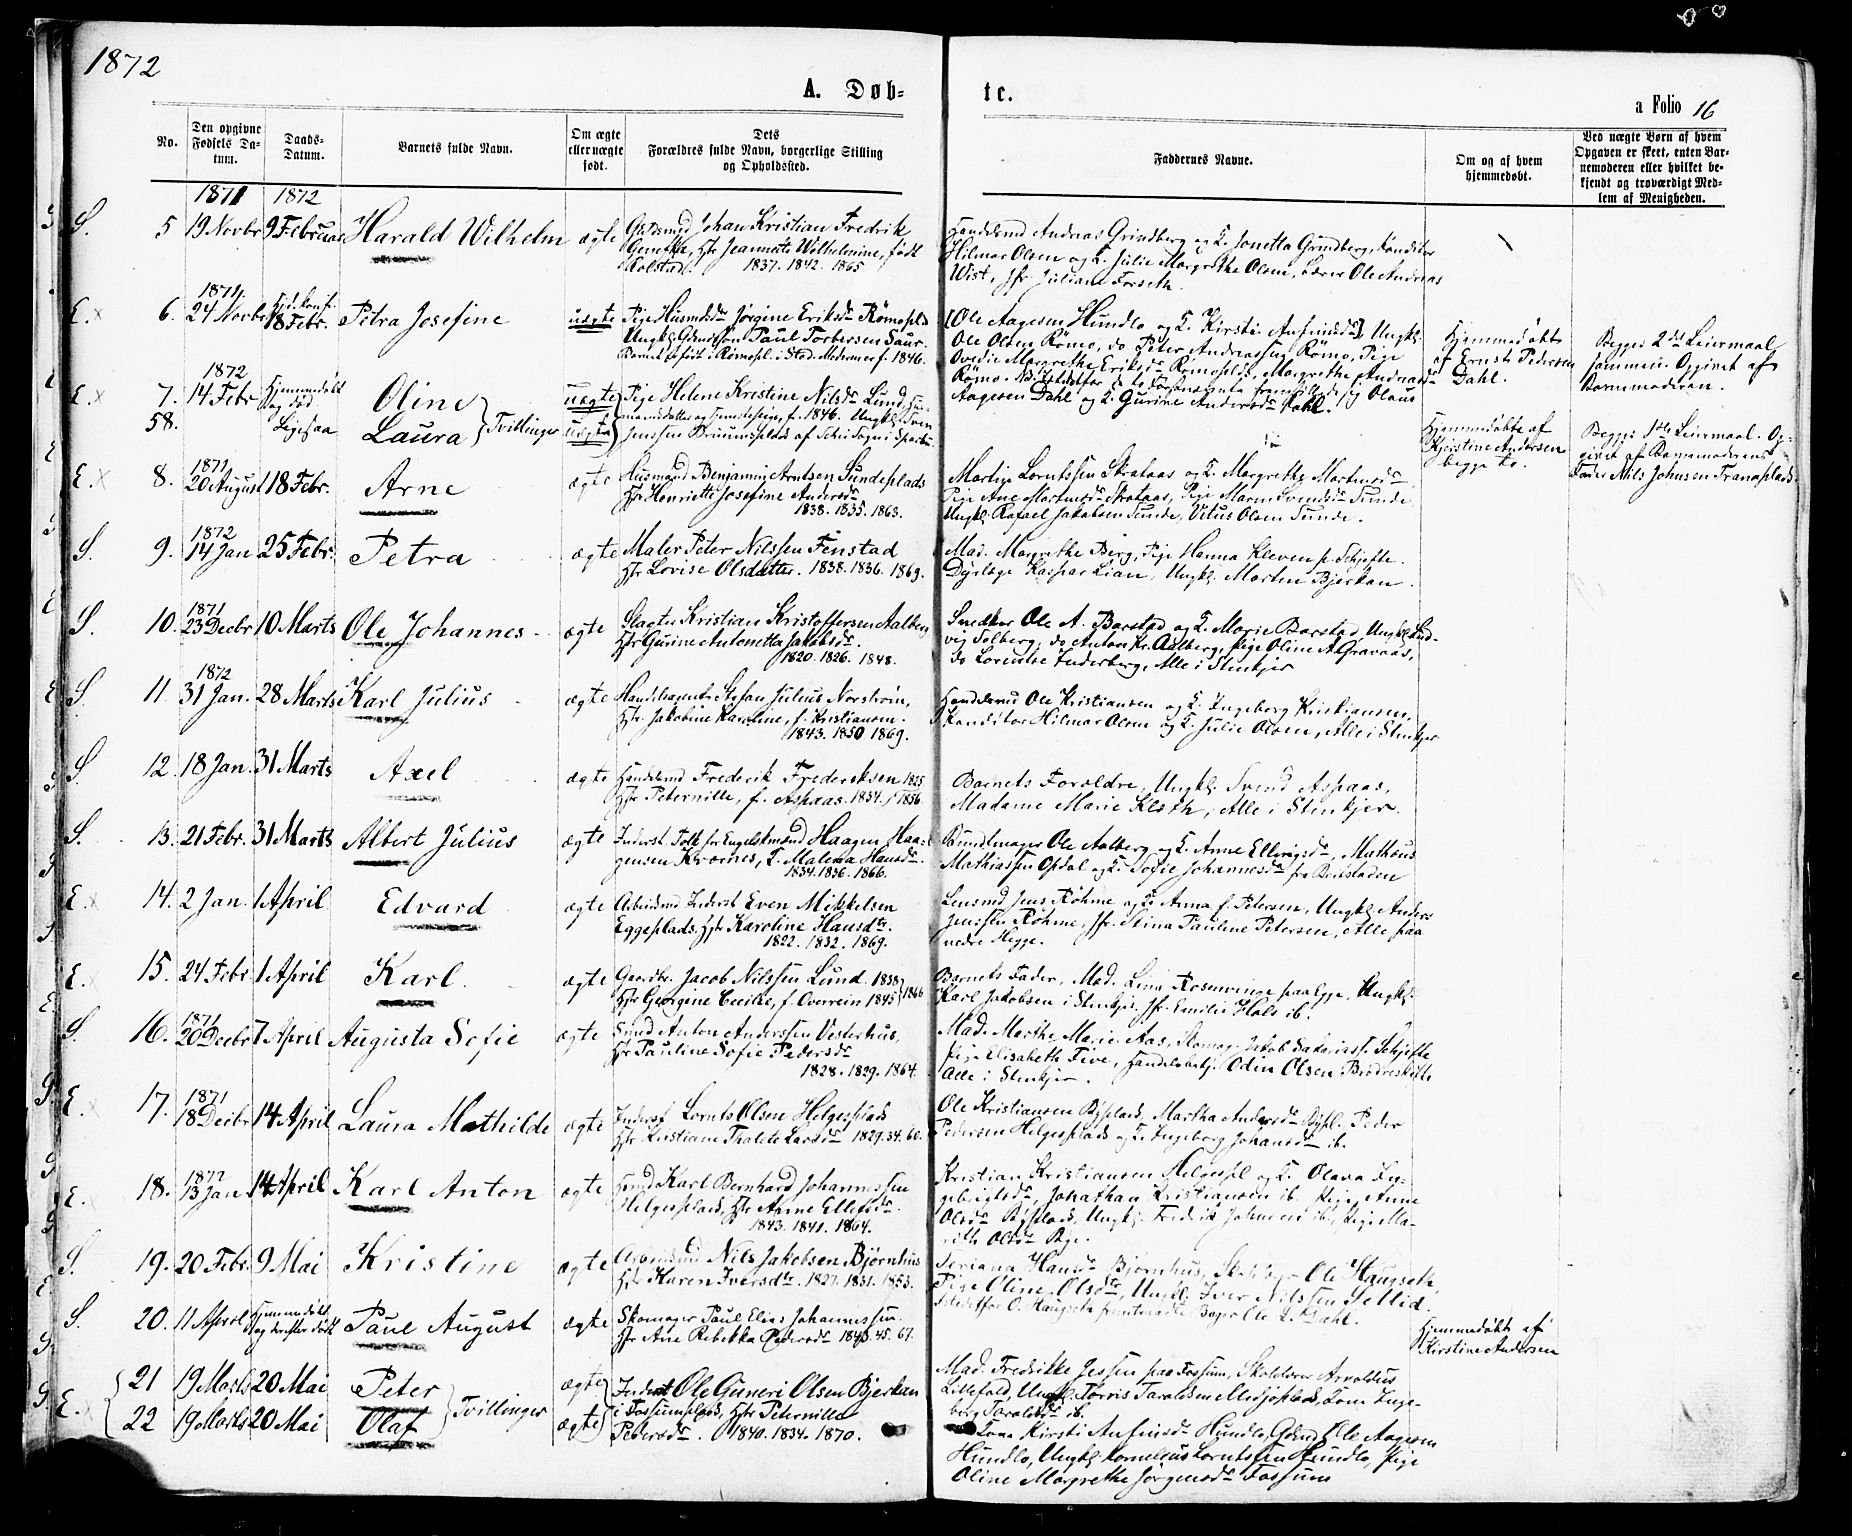 1872
A. Døb- te. a Folio 16
No.
Den opgivne Fødsels Da- tum.
Daabs- Datum.
Barnets fulde Navn.
Om ægte eller uægte født.
Dets Forældres fulde Navn, borgerlige Stilling og Opholdssted.
Faddernes Navne.
Om og af hvem hjemmedøbt.
Ved uægte Børn af hvem Opgaven er skeet, enten Bar- nemoderen eller hvilket be- kjendt og troværdigt Med- lem af Menigheden.
1871 1872
S. 5 19 Novbr 9 Februar Harald Wilhelm ægte Johan Kristian Fredrik
Hr Jeannette Wilhelmine, født
Rolstad. 1837. 1842. 1865
Handelsmd Andreas Grindberg og K. Jonetta Grindberg, Konditor
Hilmar Olsen og K. Julie Margrethe Olsen, Lærer Ole Andreas
Wist, Jfr. Juliane Forseth.
1871
E. 6. 24 Novbr 18 Febr. Petra Josefine uægte Pige Jørgine Eriksdr Römopls
Ungkl. Paul Torbersen Saur.
f. 1846.
Ole Aagesen Hundlo og K. Kirsti Anfindsdr, Ungkl.
Ole Olsen Römo, do Peter Andreassen Römo, Pige
Ovedie Margrethe Eriksdr Römoplds, Margrethe Andreasdr
Römo.
Aagesen Dahl og K. Gurine Andersdr Dahl.
Hjemmedøbt
af Ernst Pedersen
Dahl.
Begges 2det Leiermaal
sammen. Opgivet af
Barnemoderen.
1872
E. 7. 14 Febr Hjemmedøbt og død Ligesaa Oline uægte Pige Helene Kristine Nilsdr Lund
58. Laura Tvillinger uægte f. 1846. Ungkl. Sven
Jenssen
Hjemmedøbte af
Kjerstine Andersen
begge to.
Begges 1ste Leiermaal. Op-
givet af Barnemoderens
Fader Nils Johnsen Tranaplads.
1871
E. 8. 20 August 18 Febr. Arne ægte Husmand Benjamin Arntsen Sundeplads
Hr Henriette Josefine Andersdr
1838. 1835. 1863.
Martin Lorntssen Skrataas og K. Margrethe Martinusdr
Pige Ane Martinusdr Skrataas, Pige Maren Svendsdr Sunde
Ungkl. Rafael Jakobsen Sunde, Vitus Olsen Sunde.
1872
S. 9. 14 Jan 25 Febr. Petra ægte Maler Peter Nilssen Fenstad
Hr Lovise Olsdatter. 1838. 1836. 1869.
Mad. Margrethe Berg, Pige Hanna Kleven p. Schjefte.
Dyrlæge Kaspar Lian, Ungkl. Morten Bjerkan.
1871
S. 10. 23 Decbr 10 Marts Ole Johannes ægte Slagter Kristian Kristoffersen Aalberg
Hr Gurine Antonetta Jakobsdr.
1820. 1826. 1848.
Snedker Ole A. Barstad og K. Marie Barstad, Ungkl. Lud-
vig Solberg, do Anton Kr. Aalberg, Pige Oline A Gravaas,
do Lorentse Inderberg, Alle i Stenkjer
1872
S. 11. 31 Jan. 28 Marts Karl Julius ægte Handelsagent Stefan Julius Norstrøm,
Hr. Jakobine Karoline, f. Kristiansen.
1843. 1850 1869.
Handelsmd Ole Kristiansen og K. Ingeborg Kristiansen,
Konditor Hilmar Olsen og K. Julie Olsen, Alle i Stenkjer
S. 12 18 Jan. 31 Marts Axel ægte Handelsmd Frederik Frederiksen 1825
Hr Peternille, f. Aspaas. 1834. 1856
Barnets Forældre, Ungkl. Svend Aspaas,
Madame Marie Kloth, Alle i Stenkjer.
S. 13. 21 Febr. 31 Marts Albert Julius ægte Inderst Tolk for Engelskmænd Haagen Haa-
gensen Kvarnes, K. Malena Hansdr.
1834. 1836. 1866.
Bundtmager Ole Aalberg og K. Anne Ellevigsdr, Mathæus
Mathiassen Opdal og K. Sofie Johannesdr fra Beitstaden
E. 14. 2 Jan. 1 April Edvard ægte Arbeidsmd Inderst Even Mikkelsen
Eggeplads. Hr Karoline Hansdr.
1822. 1832. 1869.
Lensmd Jens Röhme og K. Anna f. Petersen, Ungkl. Anders
Jenssen Röhme, Jfr. Stina Pauline Petersen, Alle paa
nedre Hegge.
E. 15. 24 Febr 1 April Karl ægte Gaardbr. Jacob Nilssen Lund 1838
Hr Georgine Cecilie, f. Overrein 1845 1866
Barnets Fader, Mad. Lina Rosenvinge paa Egge, Ungkl.
Karl Jakobsen i Stenkjer, Jfr. Emilie Hals ib.
1871
S. 16. 20 Decbr 7 April Augusta Sofie ægte Smed Anton Anderssen Vesterhus,
Hr Pauline Sofie Pedersdr
1828. 1829. 1864.
Mad. Marthe Marie Aas, Skomag. Jakob Sakariass. Schjefte
Pige Elisabeth Five, Handelsbetj. Odin Olsen Brødreskift
Alle i Stenkjer.
1871
E. 17. 18 Decbr 14 April Laura Mathilde ægte Inderst Lornts Olsen Helgesplads
Hr Kristiane Thalete Larsdr 1829. 34. 60.
Ole Kristiansen Byplads, Martha Andersdr Bypl. Peder
Pedersen Helgesplads og K. Ingeborg Johansdr ib.
1872
E. 18. 13 Jan 14 April Karl Anton ægte Karl Bernhard Johannessen
Helgesplads, Hr Anne Ellefsdr.
1843. 1841. 1864.
Kristian Kristiansen Helgespl og K. Olava In-
gebrigtsdr, Jonathan Kristiansen ib. Pige Anne
Olsdr Byplads, Ungkl. Fredrik Johnsen ib., Pige Ma-
rith Olsdr Bye.
S. 19. 20 Febr 9 Mai Kristine ægte Arbeidsmd Nils Jakobsen Bjørnhus
Hr Karen Iversdr. 1827. 1831. 1853.
Seriana Hansdr Bjørnhus, Ole Haugseth,
Pige Oline Olsdr, Ungkl. Iver Nilssen
Istedetfor O. Haugseth fremmødte Bager Ole L. Dahl.
S. 20. 11 April Hjemmedøbt og derefter død Paul August ægte Skomager Paul Elias Johannessen.
Hr Ane Rebekka Pedersdr 1843. 45. 67.
Hjemmedøbt af
Kirstine Andersen
E. 21 19 Marts 20 Mai Peter ægte Inderst Ole Guneri Olsen Bjerkan
22 19 Marts 20 Mai Olaf Tvillinger ægte i Fossumplads, Hr Peternille
Pedersdr. 1840. 1834. 1870.
Mad. Fredrikke Jessen paa Fossum, Skolelærer Arnoldus
Lillefald, Ungkl. Torris Taraldsen Kone Inge-
borg Taraldsdr ib.
Kone Kirsti Anfindsdr Hundlo, Gdmd Ole Aagesen
Hundlo, Ungkl. Kornelius Lorntssen Hundlo, Pige
Oline Margrethe Jørgensdr Fossum